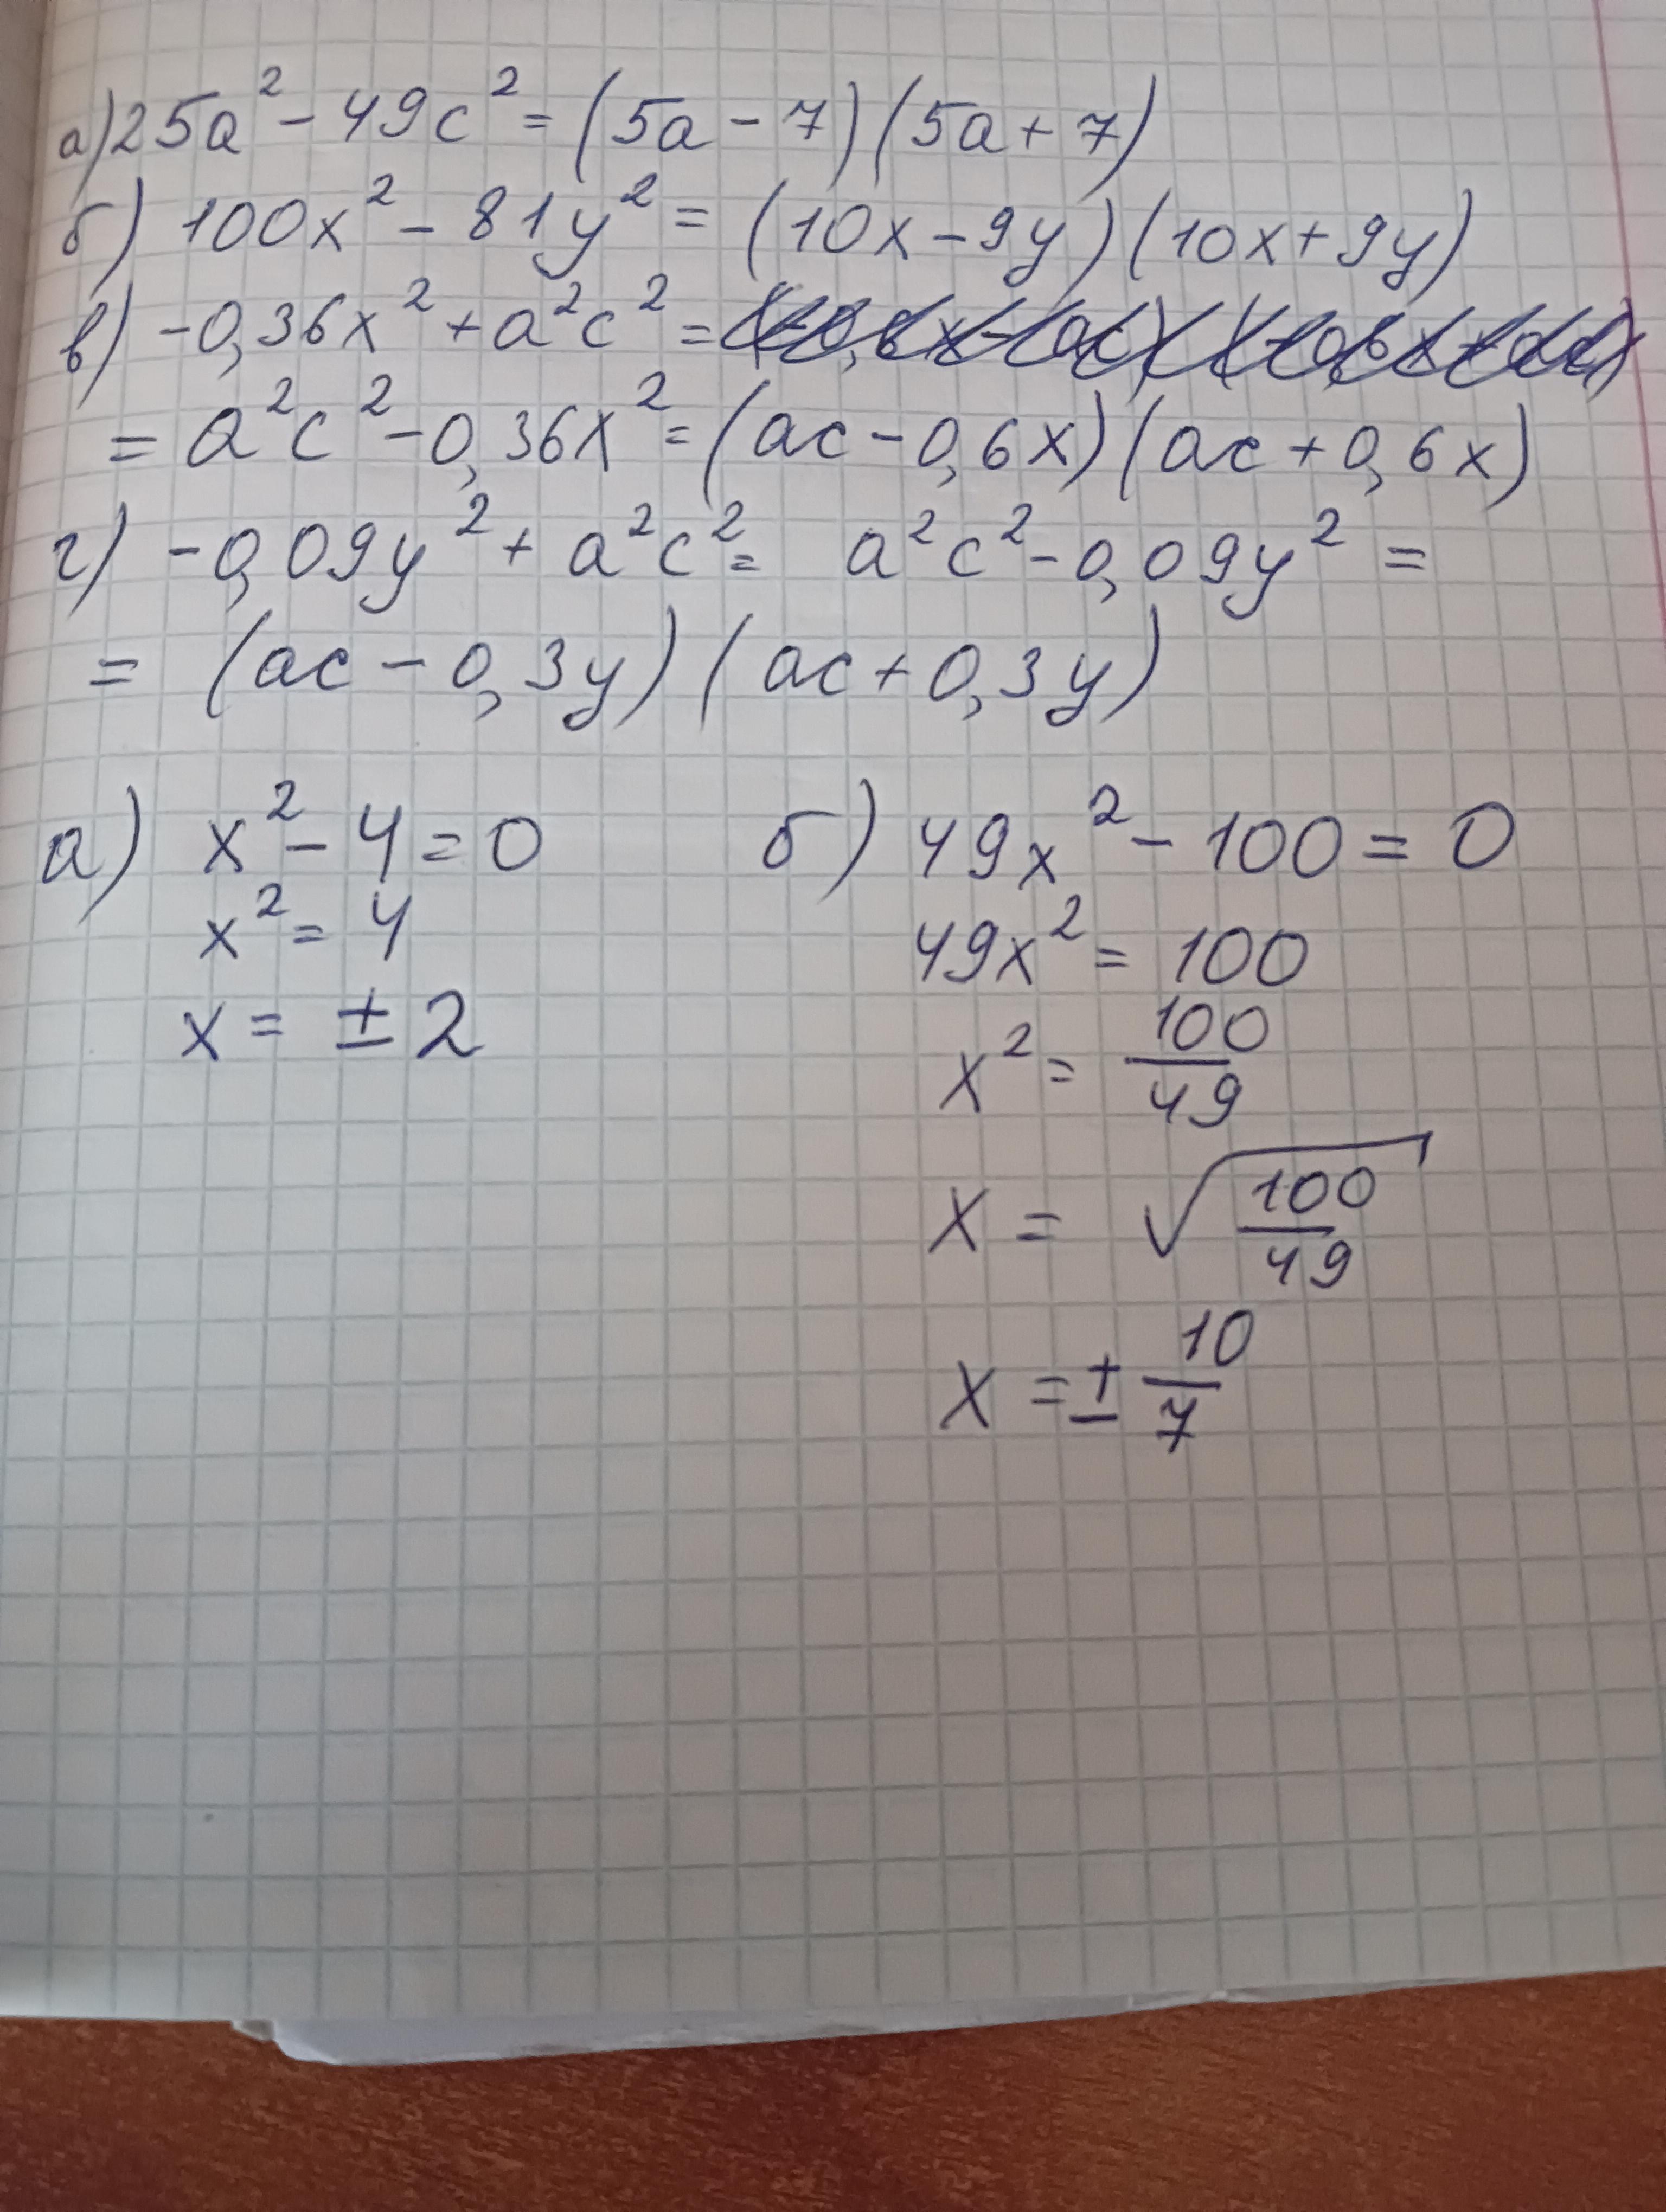 а) 25a² - 49c² = (5a - 7)(5a + 7)
б) 100x² - 81y² = (10x - 9y)(10x + 9y)
в) -0,36x² + a²c² =
= a²c² - 0,36x² = (ac - 0,6x)(ac + 0,6x)
г) -0,09y² + a²c² = a²c² - 0,09y² =
= (ac - 0,3y)(ac + 0,3y)
а) x² - 4 = 0
x² = 4
x = ± 2
б) 49x² - 100 = 0
49x² = 100
x² = 100/49
x = √(100/49)
x = ± 10/7